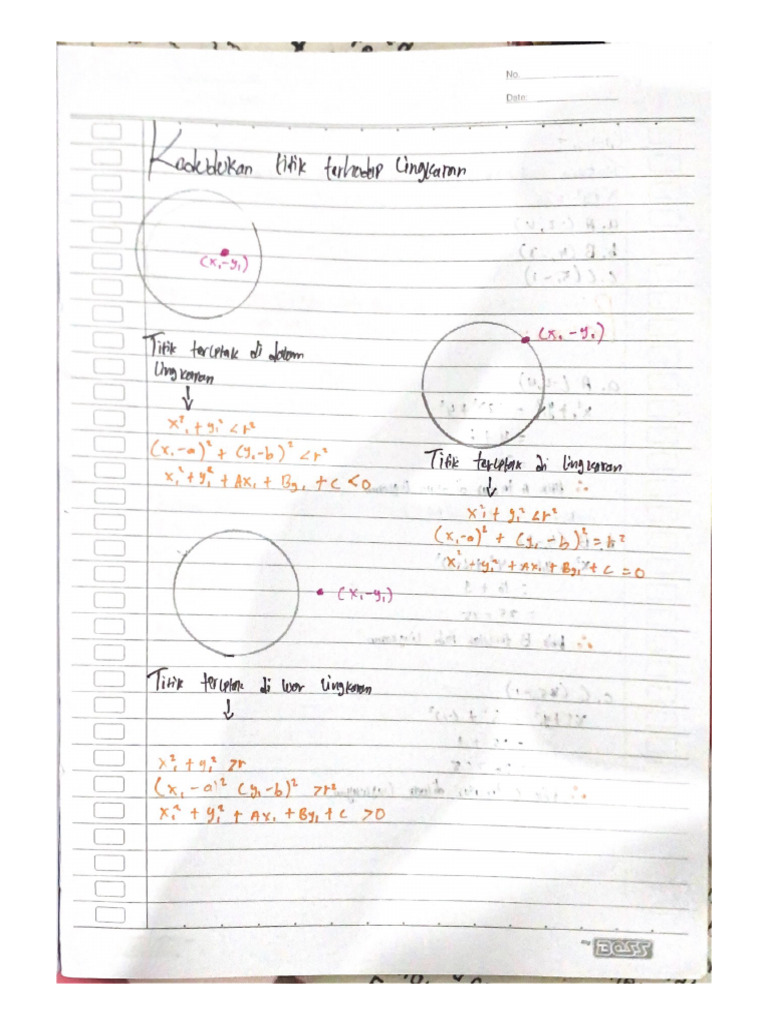 No.
Date:
Kedudukan titik terhadap lingkaran
(x₁-y₁)
(x₁-y₁)
Titik terletak di dalam
lingkaran
↓
x₁² + y₁² < r²
(x₁-a)² + (y₁-b)² < r²
x₁² + y₁² + Ax₁ + By₁ + C < 0
Titik terletak di lingkaran
↓
x₁² + y₁² < r²
(x₁-a)² + (y₁-b)² = r²
x₁² + y₁² + Ax₁ + By₁ + C = 0
(x₁-y₁)
Titik terletak di luar lingkaran
↓
x₁² + y₁² > r
(x₁-a)² (y₁-b)² > r²
x₁² + y₁² + Ax₁ + By₁ + C > 0
BOSS